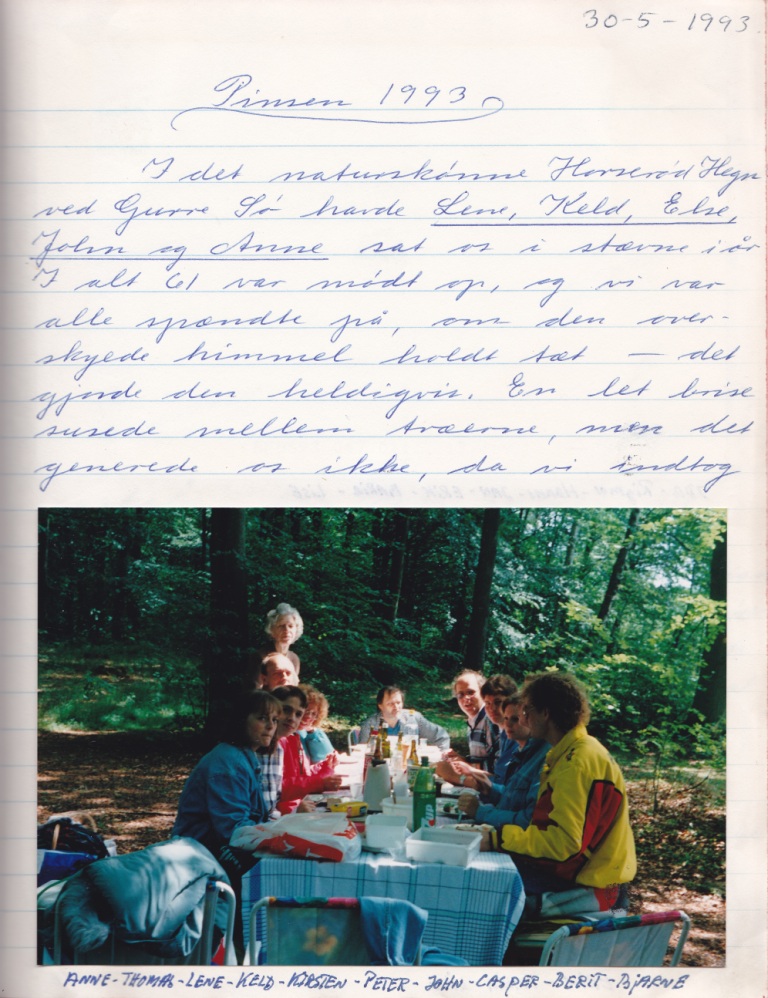 30-5-1993.
Pinsen 1993
I det naturskønne Horserød Hegn
ved Gurre Sø havde Lene, Keld, Else,
John og Anne sat os i stævne i år
I alt 61 var mødt op, og vi var
alle spændte på, om den over-
skyede himmel holdt tæt – det
gjorde den heldigvis. En let brise
susede mellem træerne, men det
generede os ikke, da vi indtog
ANNE-THOMAS-LENE-KELD-KIRSTEN-PETER-JOHN-CASPER-BERIT-BJARNE